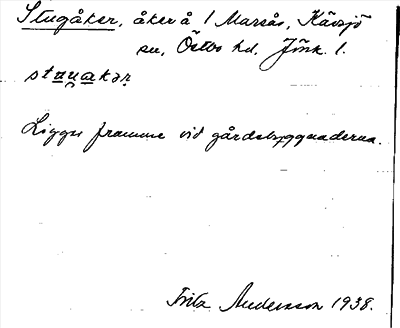 Stugåker, åker å 1 Marsås, Kävsjö
sn, Östbo hd, Jönk. l.
stu̯u̯akər
Ligger framme vid gårdsbyggnaderna.
Fritz Andersson 1938.